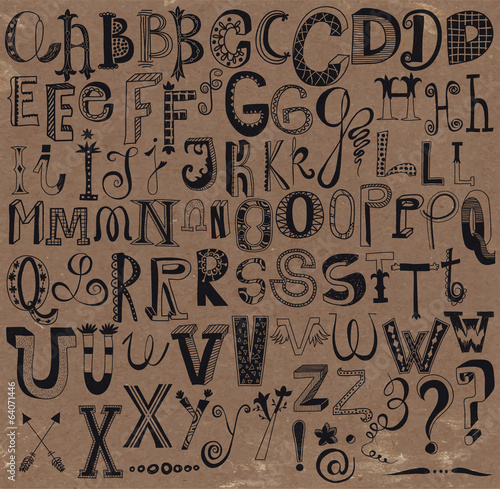 a h B B B B C C k C D D D D
E E e e E F F s G G g g H H h h
I i I I J j J K k k L L L L L
M M m m N N n n N O O O O P P p p Q
Q Q R R R R S S S S T T T t
U U U u V V V v v W W W W
X X X x y y y Z Z z 3 ? ?
! @
Adobe Stock | #64071446